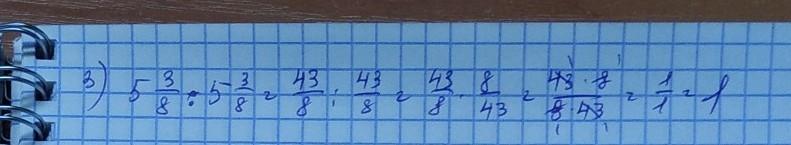 3) 5 3/8 : 5 3/8 = 43/8 : 43/8 = 43/8 · 8/43 = 43 · 8 / 8 · 43 = 1/1 = 1